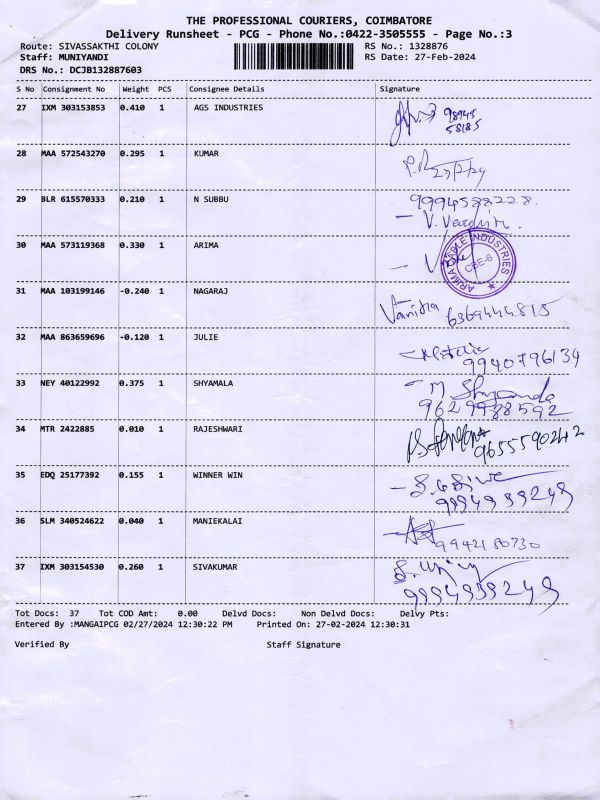 THE PROFESSIONAL COURIERS, COIMBATORE
Delivery Runsheet - PCG - Phone No.:0422-3505555 - Page No.:3
Route: SIVASSAKTHI COLONY RS No.: 1328876
Staff: MUNIYANDI RS Date: 27-Feb-2024
DRS No.: DCJB132887603
S No Consignment No Weight PCS Consignee Details Signature
27 IXM 303153853 0.410 1 AGS INDUSTRIES 98945
58185
28 MAA 572543270 0.295 1 KUMAR
29 BLR 615570333 0.210 1 N SUBBU 9994588228.
30 MAA 573119368 0.330 1 ARIMA
ARIMA INDUSTRIES
CBE-6
31 MAA 103199146 -0.240 1 NAGARAJ Vanitha 6369444815
32 MAA 863659696 -0.120 1 JULIE 9940796134
33 NEY 40122992 0.375 1 SHYAMALA M Shyamala
9629988592
34 MTR 2422885 0.010 1 RAJESHWARI 9655590242
35 EDQ 25177392 0.155 1 WINNER WIN 9994939249
36 SLM 340524622 0.040 1 MANIEKALAI 9942180730
37 IXM 303154530 0.260 1 SIVAKUMAR 9994939249
Tot Docs: 37 Tot COD Amt: 0.00 Delvd Docs: Non Delvd Docs: Delvy Pts:
Entered By :MANGAIPCG 02/27/2024 12:30:22 PM Printed On: 27-02-2024 12:30:31
Verified By Staff Signature